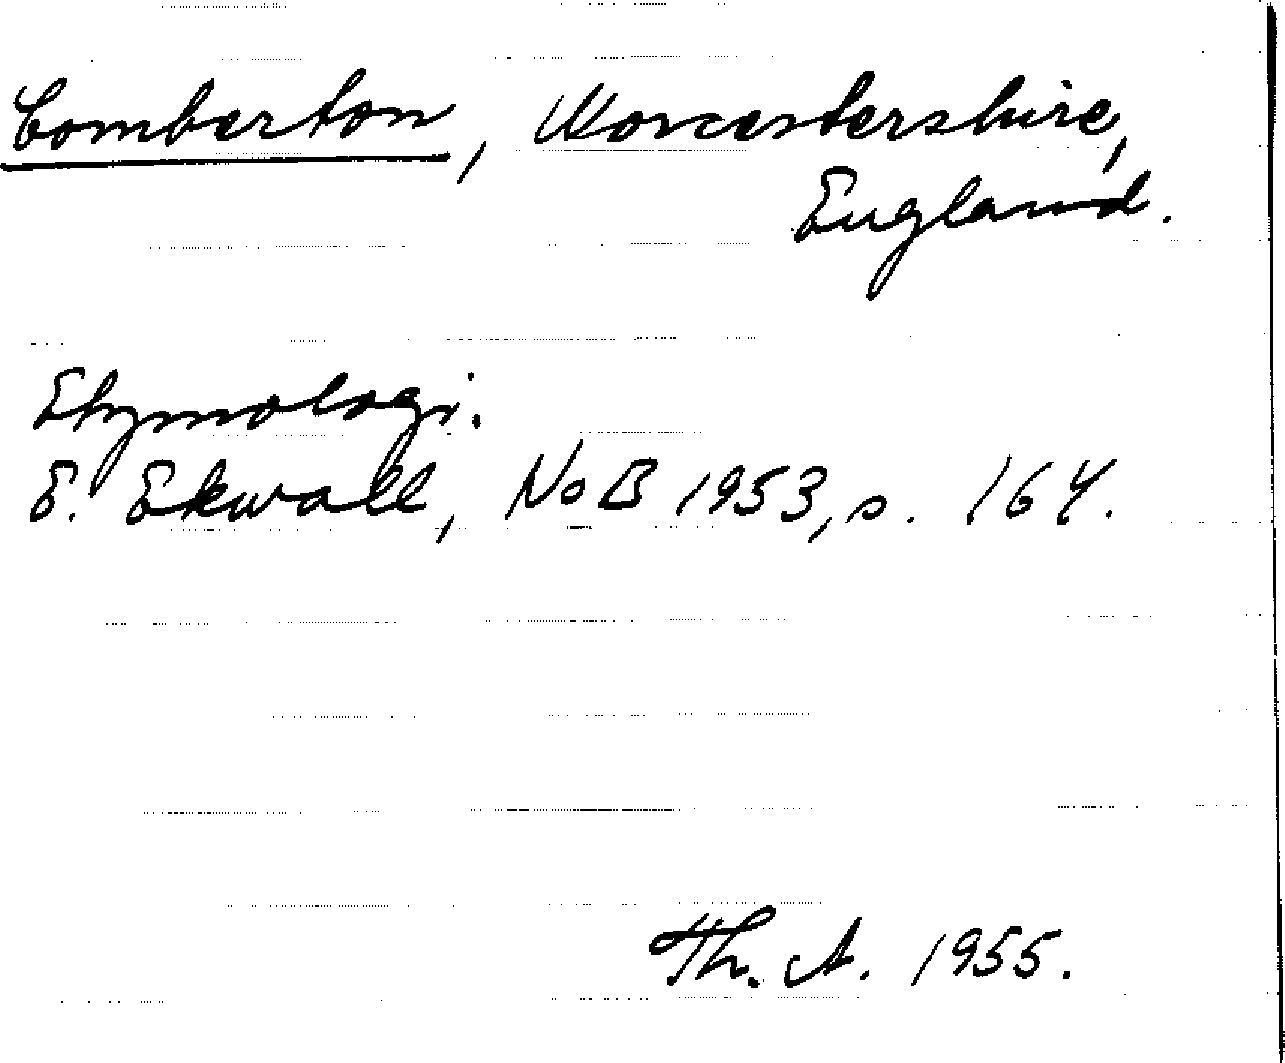 Comberton, Worcestershire,
England.
Etymologi.
E. Ekwall, NoB 1953, s. 164.
Th. A. 1955.